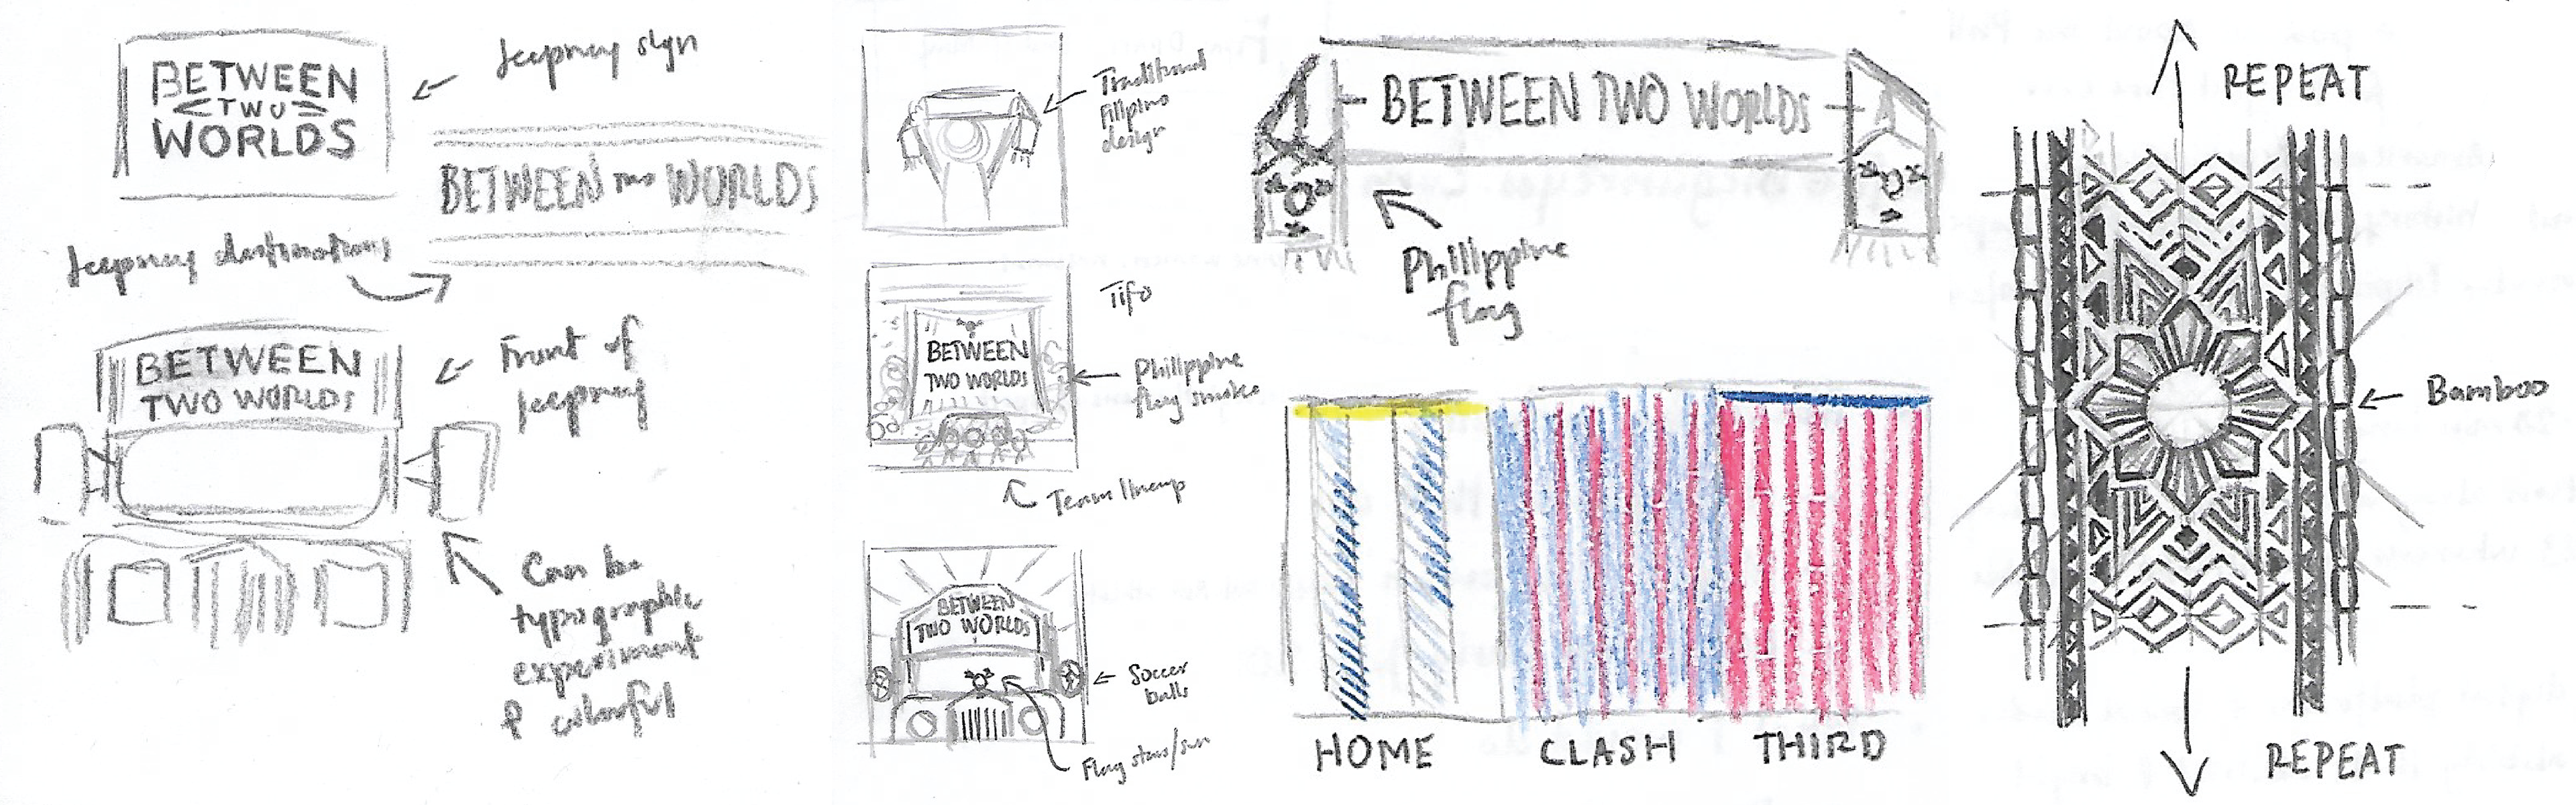 BETWEEN
TWO
WORLDS
Jeepney sign
BETWEEN TWO WORLDS
Jeepney destinations
BETWEEN
TWO WORLDS
Front of
jeepney
Can be
typographic
experiment
& colorful
Traditional
Filipino
design
BETWEEN
TWO WORLDS
Tifo
Phillippine
flag smoke
Team lineup
BETWEEN
TWO WORLDS
Soccer
balls
Flag stars/sun
BETWEEN TWO WORLDS
Phillippine
flag
HOME
CLASH
THIRD
REPEAT
Bamboo
REPEAT